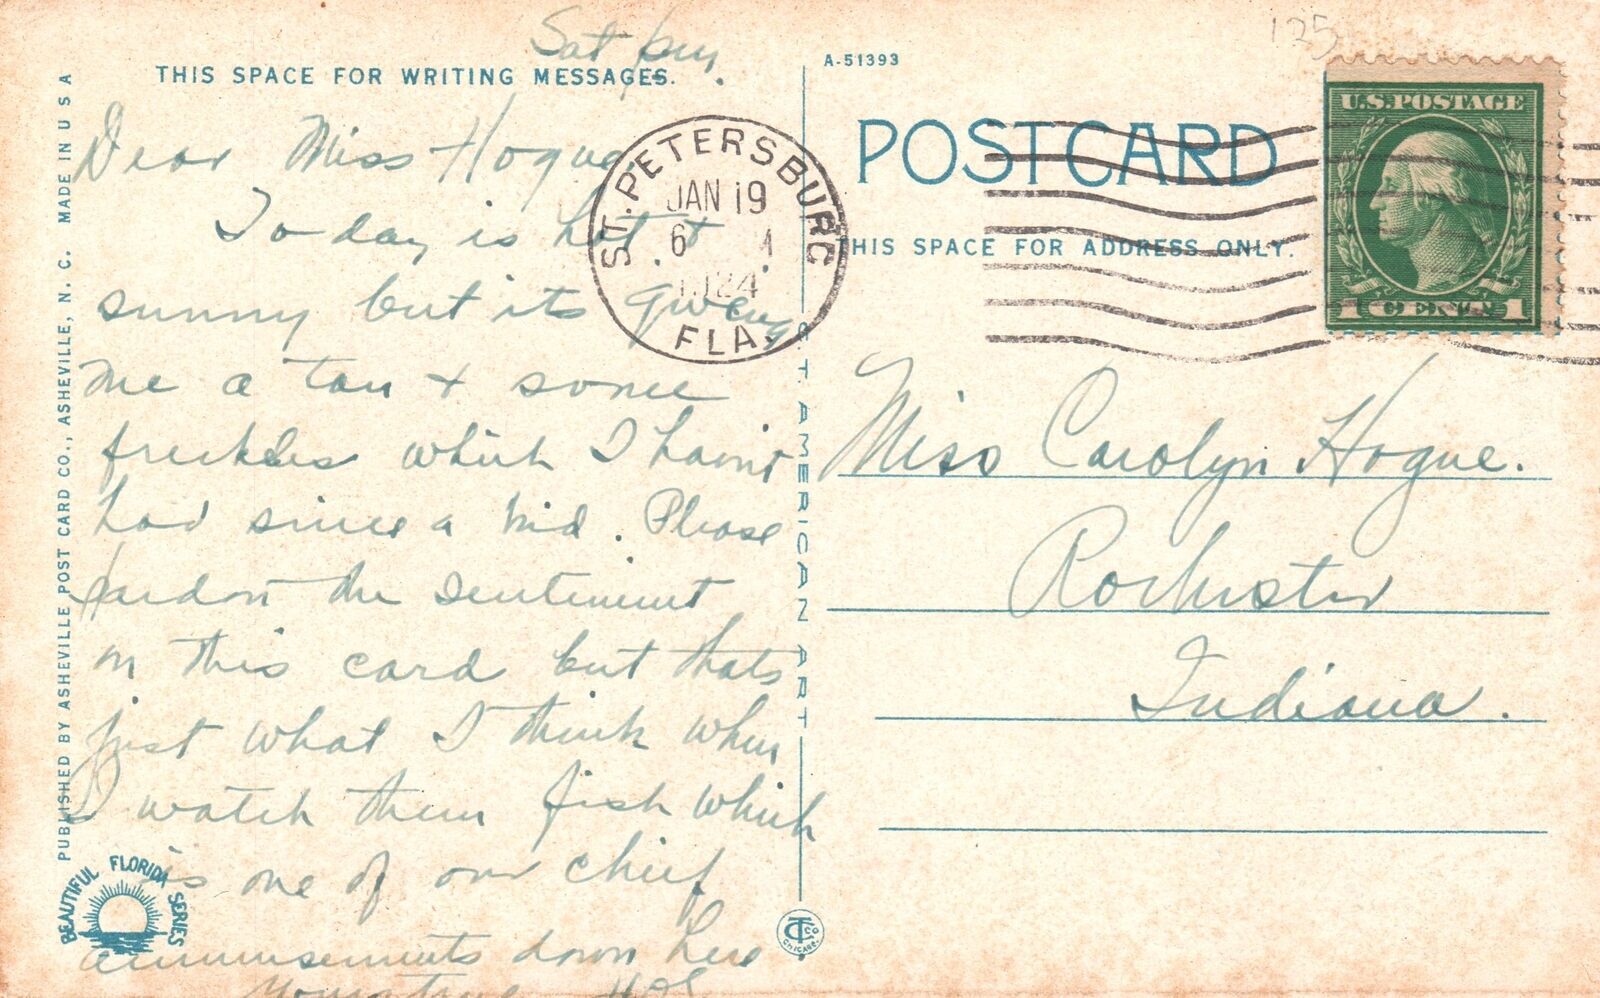 Sat
THIS SPACE FOR WRITING MESSAGES.
Dear Miss Hogue,
To day is hot +
sunny but its giveing
me a tan + some
freckles which I haint
had since a kid. Please
pardon the sentiment
on this card but thats
just what I think when
I watch them fish which
is one of our chief
amusements down here
Yours true
PUBLISHED BY ASHEVILLE POST CARD CO., ASHEVILLE, N. C. MADE IN U S A
BEAUTIFUL FLORIDA SERIES
ST. PETERSBURG
JAN 19
6
1924
FLA.
C.T. AMERICAN ART
CHICAGO
125
A-51393
POST CARD
THIS SPACE FOR ADDRESS ONLY.
U.S. POSTAGE
1 CENT 1
Miss Carolyn Hogue.
Rochester
Indiana.